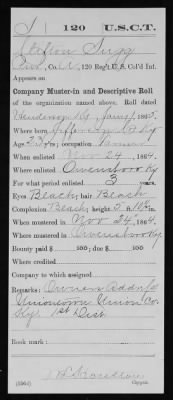 S 120 U.S.C.T.
Stephen Sugg
Pvt., Co. A, 120 Reg't U. S. Col'd Inf.
Appears on
Company Muster-in and Descriptive Roll
of the organization named above. Roll dated
Henderson Ky, Jany 1, 1865.
Where born Jefferson Co Ky
Age 23 y'rs; occupation Farmer
When enlisted Nov 24, 1864.
Where enlisted Owensboro Ky
For what period enlisted 3 years.
Eyes Black; hair Black
Complexion Black; height 5 ft. in.
When mustered in Nov 24, 1864.
Where mustered in Owensboro Ky
Bounty paid $ 100; due $ 100
Where credited
Company to which assigned
Remarks: Owner Addn for
Uniontown Union Co.
Ky 1st Dist
Book mark:
(356d) Copyist.